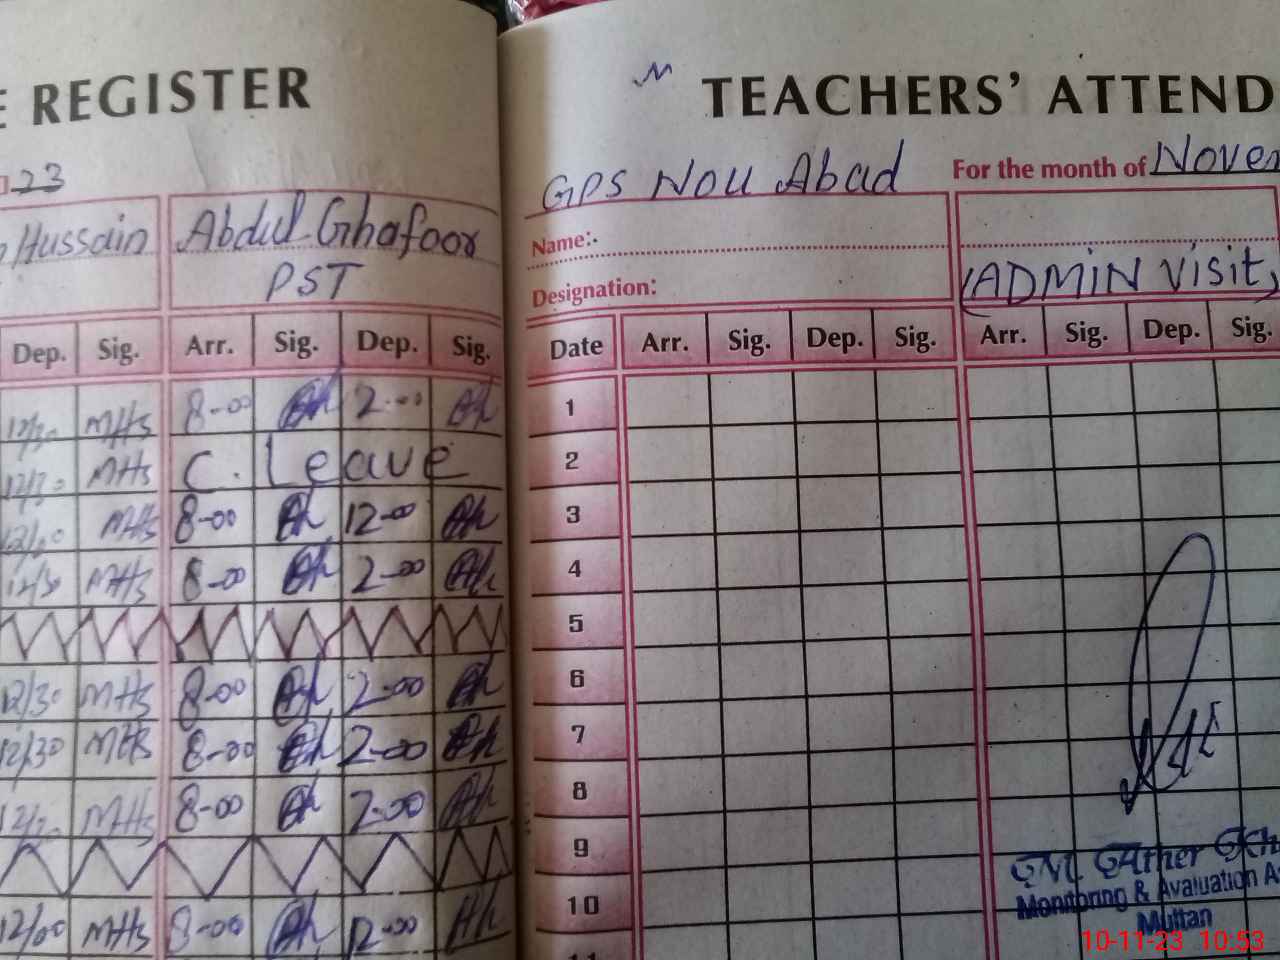 E REGISTER
23
Hussain Abdul Ghafoor
PST
Dep. Sig. Arr. Sig. Dep. Sig.
MHs 8-00 Ah 2-00 Ah
MHs C. Leave
MHs 8-00 Ah 12-00 Ah
MHs 8-00 Ah 2-00 Ah
12/30 MHs 8-00 Ah 2-00 Ah
12/30 MHs 8-00 Ah 2-00 Ah
MHs 8-00 Ah 2-00 Ah
12/00 MHs 8-00 Ah 12-00 Ah
TEACHERS' ATTEND
GPS Nou Abad For the month of Novem
Name:
Designation: (ADMIN Visit)
Date Arr. Sig. Dep. Sig. Arr. Sig. Dep. Sig.
1
2
3
4
5
6
7
8
9
10
11
Monitoring & Evaluation A
Multan
10-11-23 10:53